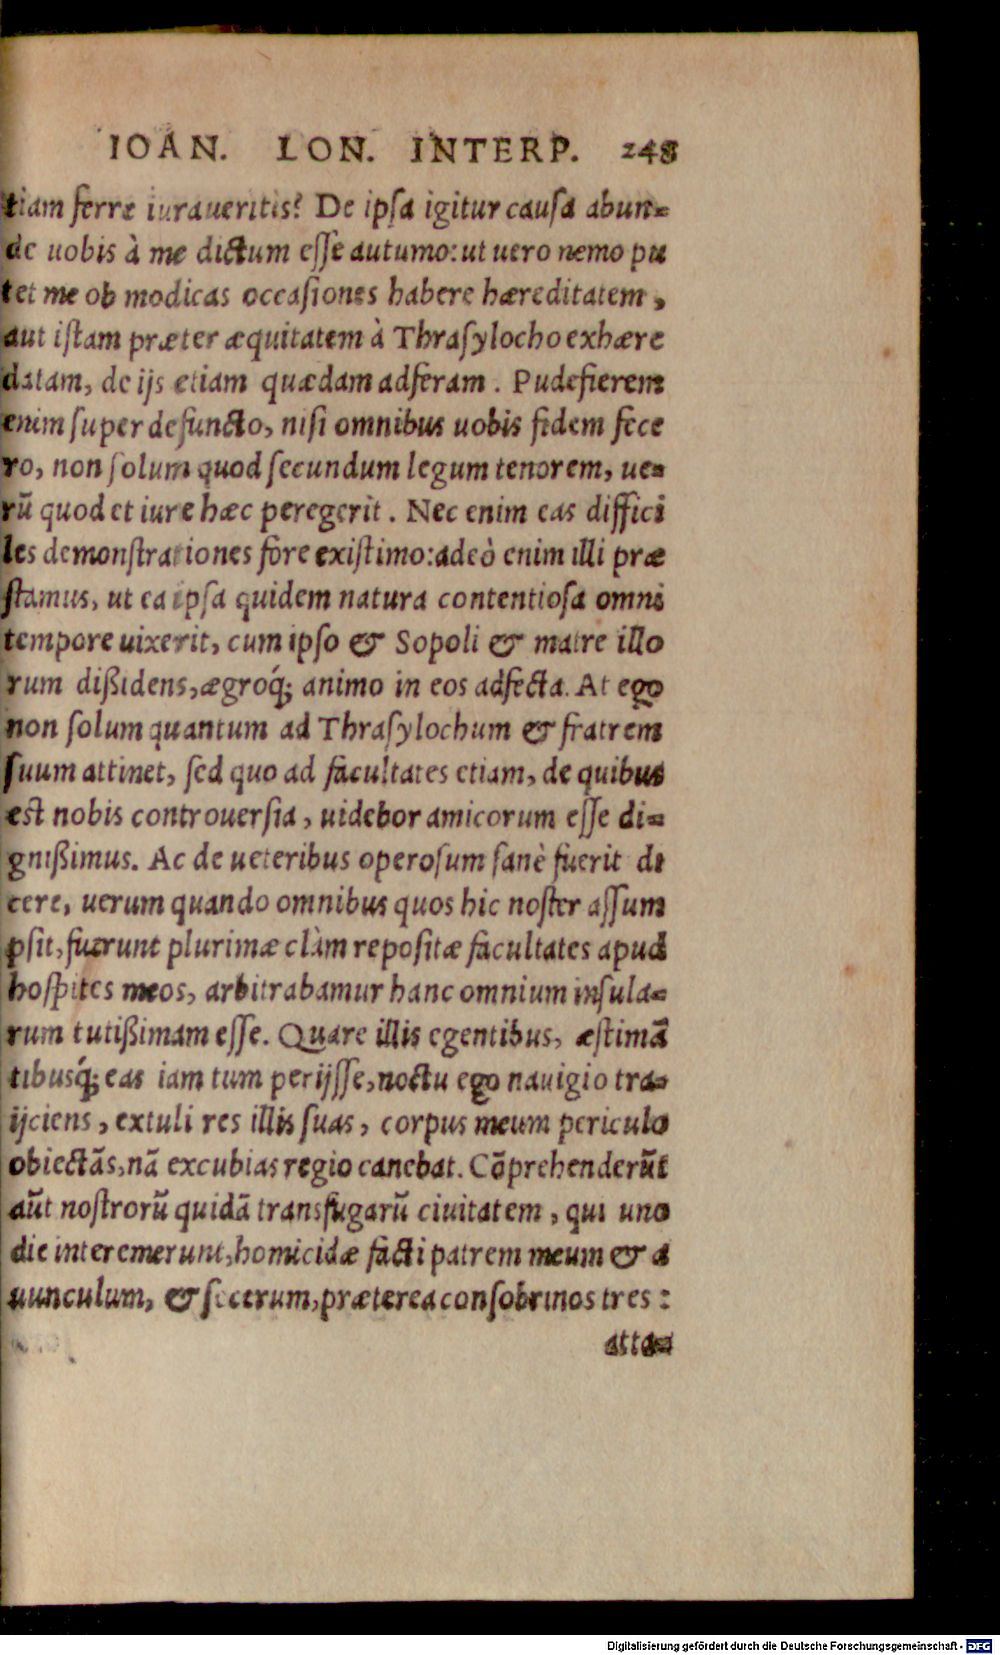 IOAN. LON. INTERP. 248
tiam ferre iuraueritis? De ipſa igitur cauſa abun-
de uobis à me dictum eſſe autumo: ut uero nemo pu
tet me ob modicas occaſiones habere hæreditatem,
aut iſtam præter æquitatem à Thraſylocho exhære
datam, de ijs etiam quædam adferam. Pudefierem
enim ſuper defuncto, niſi omnibus uobis fidem fece
ro, non ſolum quod ſecundum legum tenorem, ue-
rū quod et iure hæc peregerit. Nec enim eas diffici
les demonſtrationes fore exiſtimo: adeò enim illi præ
ſtamus, ut ea ipſa quidem natura contentioſa omni
tempore uixerit, cum ipſo & Sopoli & matre illo
rum dißidens, ægroq́; animo in eos adfecta. At ego
non ſolum quantum ad Thraſylochum & fratrem
ſuum attinet, ſed quo ad facultates etiam, de quibus
est nobis controuerſia, uidebor amicorum eſſe di-
gnißimus. Ac de ueteribus operoſum ſanè fuerit di
cere, uerum quando omnibus quos hic noſter aſſum
pſit, fuerunt plurimæ clàm repoſitæ facultates apud
hoſpites meos, arbitrabamur hanc omnium inſula-
rum tutißimam eſſe. Quare illis egentibus, æſtimā
tibusq́; eas iam tum perijſſe, noctu ego nauigio tra-
ijciens, extuli res illis ſuas, corpus meum periculo
obiectās, nā excubias regio canebat. Cōprehenderūt
aūt noſtrorū quidā transfugarū ciuitatem, qui uno
die interemerunt, homicidæ facti patrem meum & a
uunculum, & ſocerum, præterea conſobrinos tres:
atta-
Digitalisierung gefördert durch die Deutsche Forschungsgemeinschaft - DFG